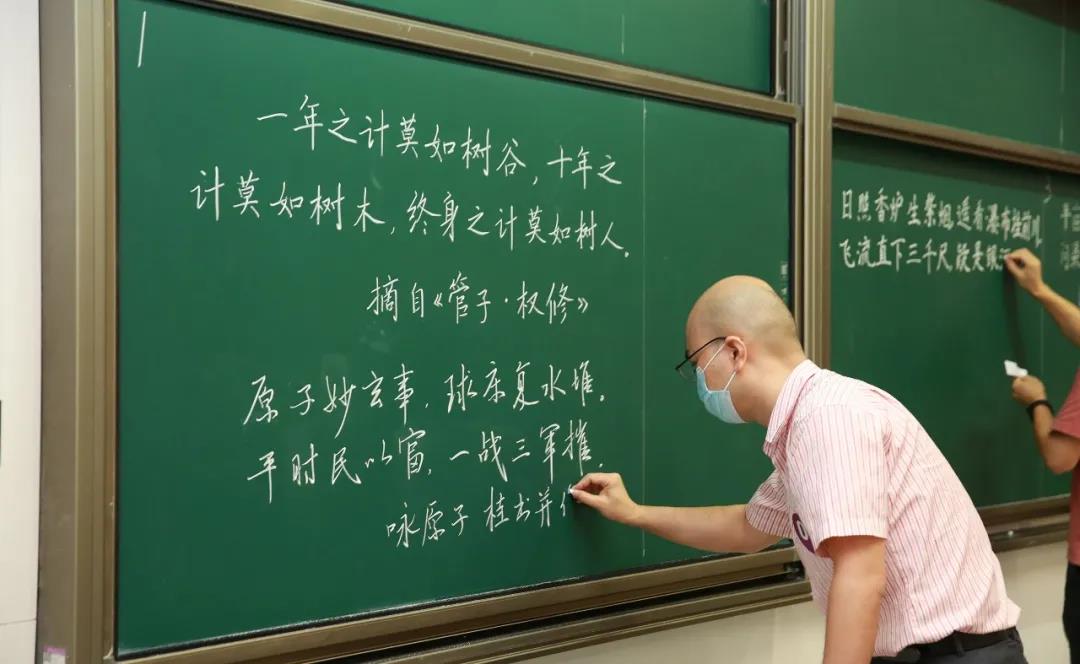 一年之计莫如树谷，十年之
计莫如树木，终身之计莫如树人。
摘自《管子·权修》
原子妙玄事，球床复水堆。
平时民以富，一战三军摧。
咏原子 桂书并
日照香炉生紫烟遥看瀑布挂前川
飞流直下三千尺疑是银河